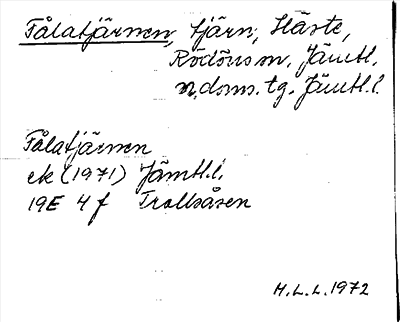 Fålatjärnen, tjärn, Häste,
Rödöns sn, Jämtl.
n. doms. tg. Jämtl. l.
Fålatjärnen
ek (1971) Jämtl. l.
19E 4f Trollsåsen
H.L.L. 1972